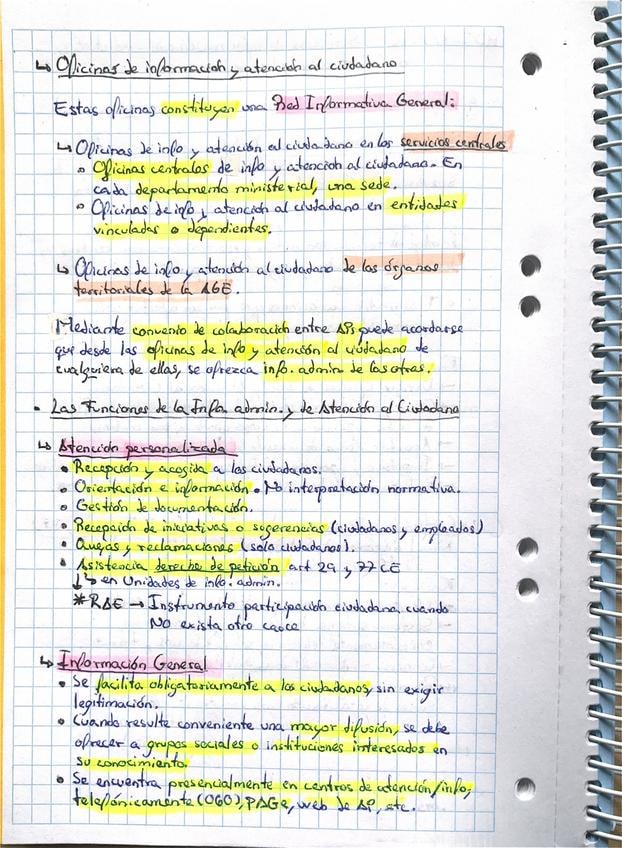 ↳ Oficinas de información y atención al ciudadano
Estas oficinas constituyen una Red Informativa General:
↳ Oficinas de info y atención al ciudadano en los servicios centrales
• Oficinas centrales de info y atención al ciudadano. En
cada departamento ministerial, una sede.
• Oficinas de info y atención al ciudadano en entidades
vinculadas o dependientes.
↳ Oficinas de info y atención al ciudadano de los órganos
territoriales de la AGE.
Mediante convenio de colaboración entre APs puede acordarse
que desde las oficinas de info y atención al ciudadano de
cualquiera de ellas, se ofrezca info. admin de las otras.
• Las Funciones de la Infa admin. y de Atención al Ciudadano
↳ Atención personalizada
• Recepción y acogida a los ciudadanos.
• Orientación e información. No interpretación normativa.
• Gestión de documentación.
• Recepción de iniciativas o sugerencias (ciudadanos y empleados)
• Quejas y reclamaciones (solo ciudadanos).
• Asistencia derecho de petición art 29 y 77 CE
↳ en Unidades de info. admin.
* RAE → Instrumento participación ciudadana cuando
NO exista otro cauce
↳ Información General
• Se facilita obligatoriamente a los ciudadanos, sin exigir
legitimación.
• Cuando resulte conveniente una mayor difusión, se debe
ofrecer a grupos sociales o instituciones interesados en
su conocimiento.
• Se encuentra presencialmente en centros de atención/info,
telefónicamente (060), PAGe, web de AP, etc.